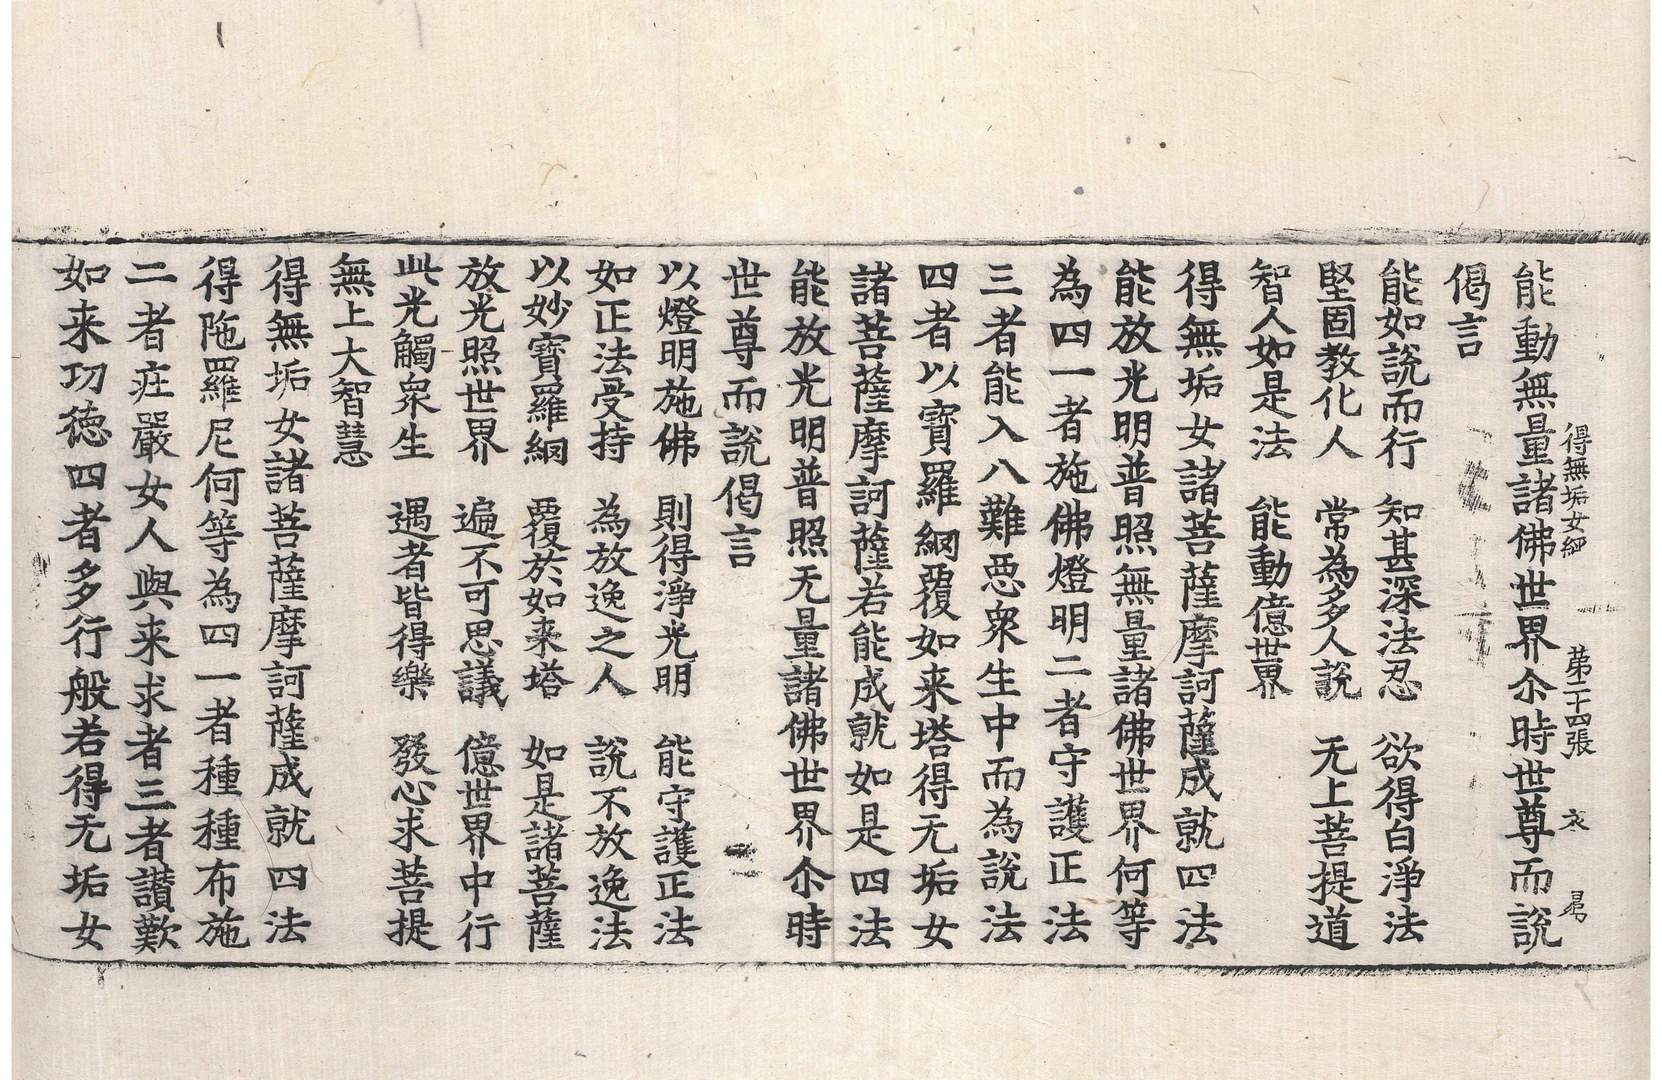 能動無量諸佛世界尒時世尊而說
得無垢女經 第二十四張 衣
偈言
能如說而行 知甚深法忍 欲得白淨法
堅固教化人 常為多人說 无上菩提道
智人如是法 能動億世界
得無垢女諸菩薩摩訶薩成就四法
能放光明普照無量諸佛世界何等
為四一者施佛燈明二者守護正法
三者能入八難惡衆生中而為說法
四者以寶羅網覆如来塔得无垢女
諸菩薩摩訶薩若能成就如是四法
能放光明普照无量諸佛世界尒時
世尊而說偈言
以燈明施佛 則得淨光明 能守護正法
如正法受持 為放逸之人 說不放逸法
以妙寶羅網 覆於如来塔 如是諸菩薩
放光照世界 遍不可思議 億世界中行
此光觸衆生 遇者皆得樂 發心求菩提
無上大智慧
得無垢女諸菩薩摩訶薩成就四法
得陁羅尼何等為四一者種種布施
二者庄嚴女人與来求者三者讃歎
如来功徳四者多行般若得无垢女